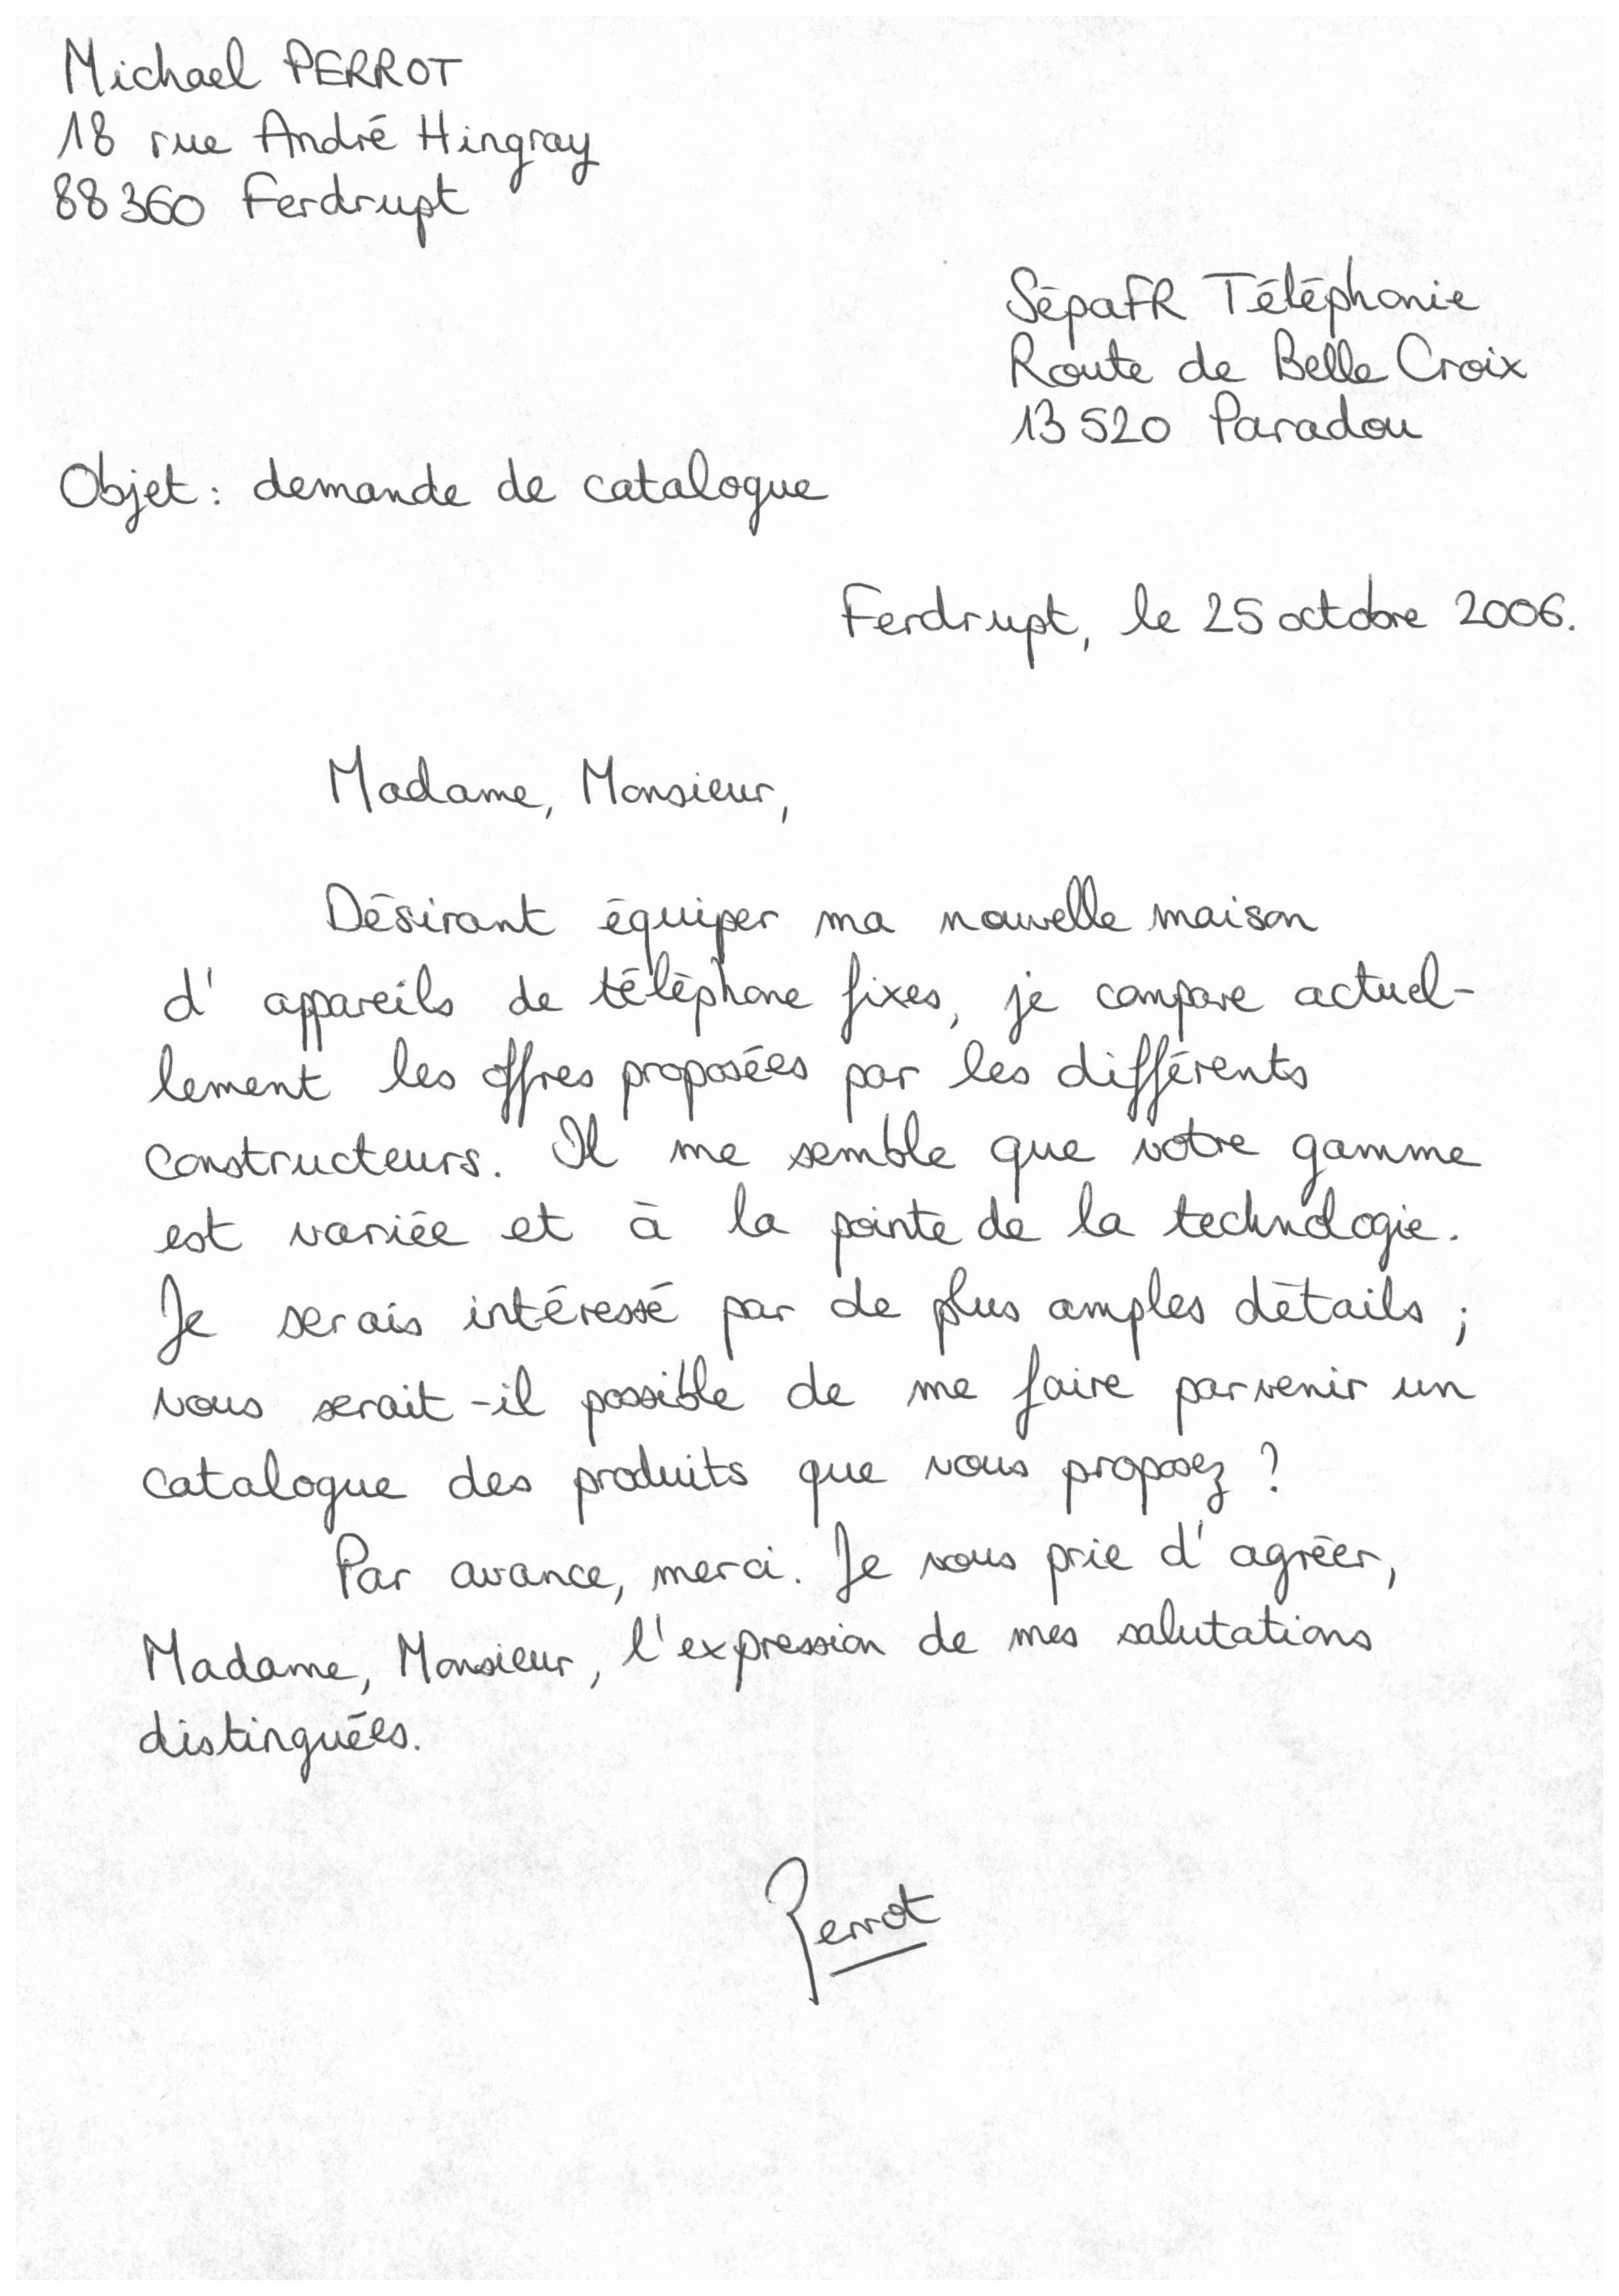 Michael PERROT
18 rue André Hingray
88360 Ferdrupt
SépaFR Téléphonie
Route de Belle Croix
13520 Paradou
Objet : demande de catalogue
Ferdrupt, le 25 octobre 2006.
Madame, Monsieur,
Désirant équiper ma nouvelle maison
d'appareils de téléphone fixes, je compare actuel-
lement les offres proposées par les différents
constructeurs. Il me semble que votre gamme
est variée et à la pointe de la technologie.
Je serais intéressé par de plus amples détails ;
vous serait-il possible de me faire parvenir un
catalogue des produits que vous proposez ?
Par avance, merci. Je vous prie d'agréer,
Madame, Monsieur, l'expression de mes salutations
distinguées.
Perrot